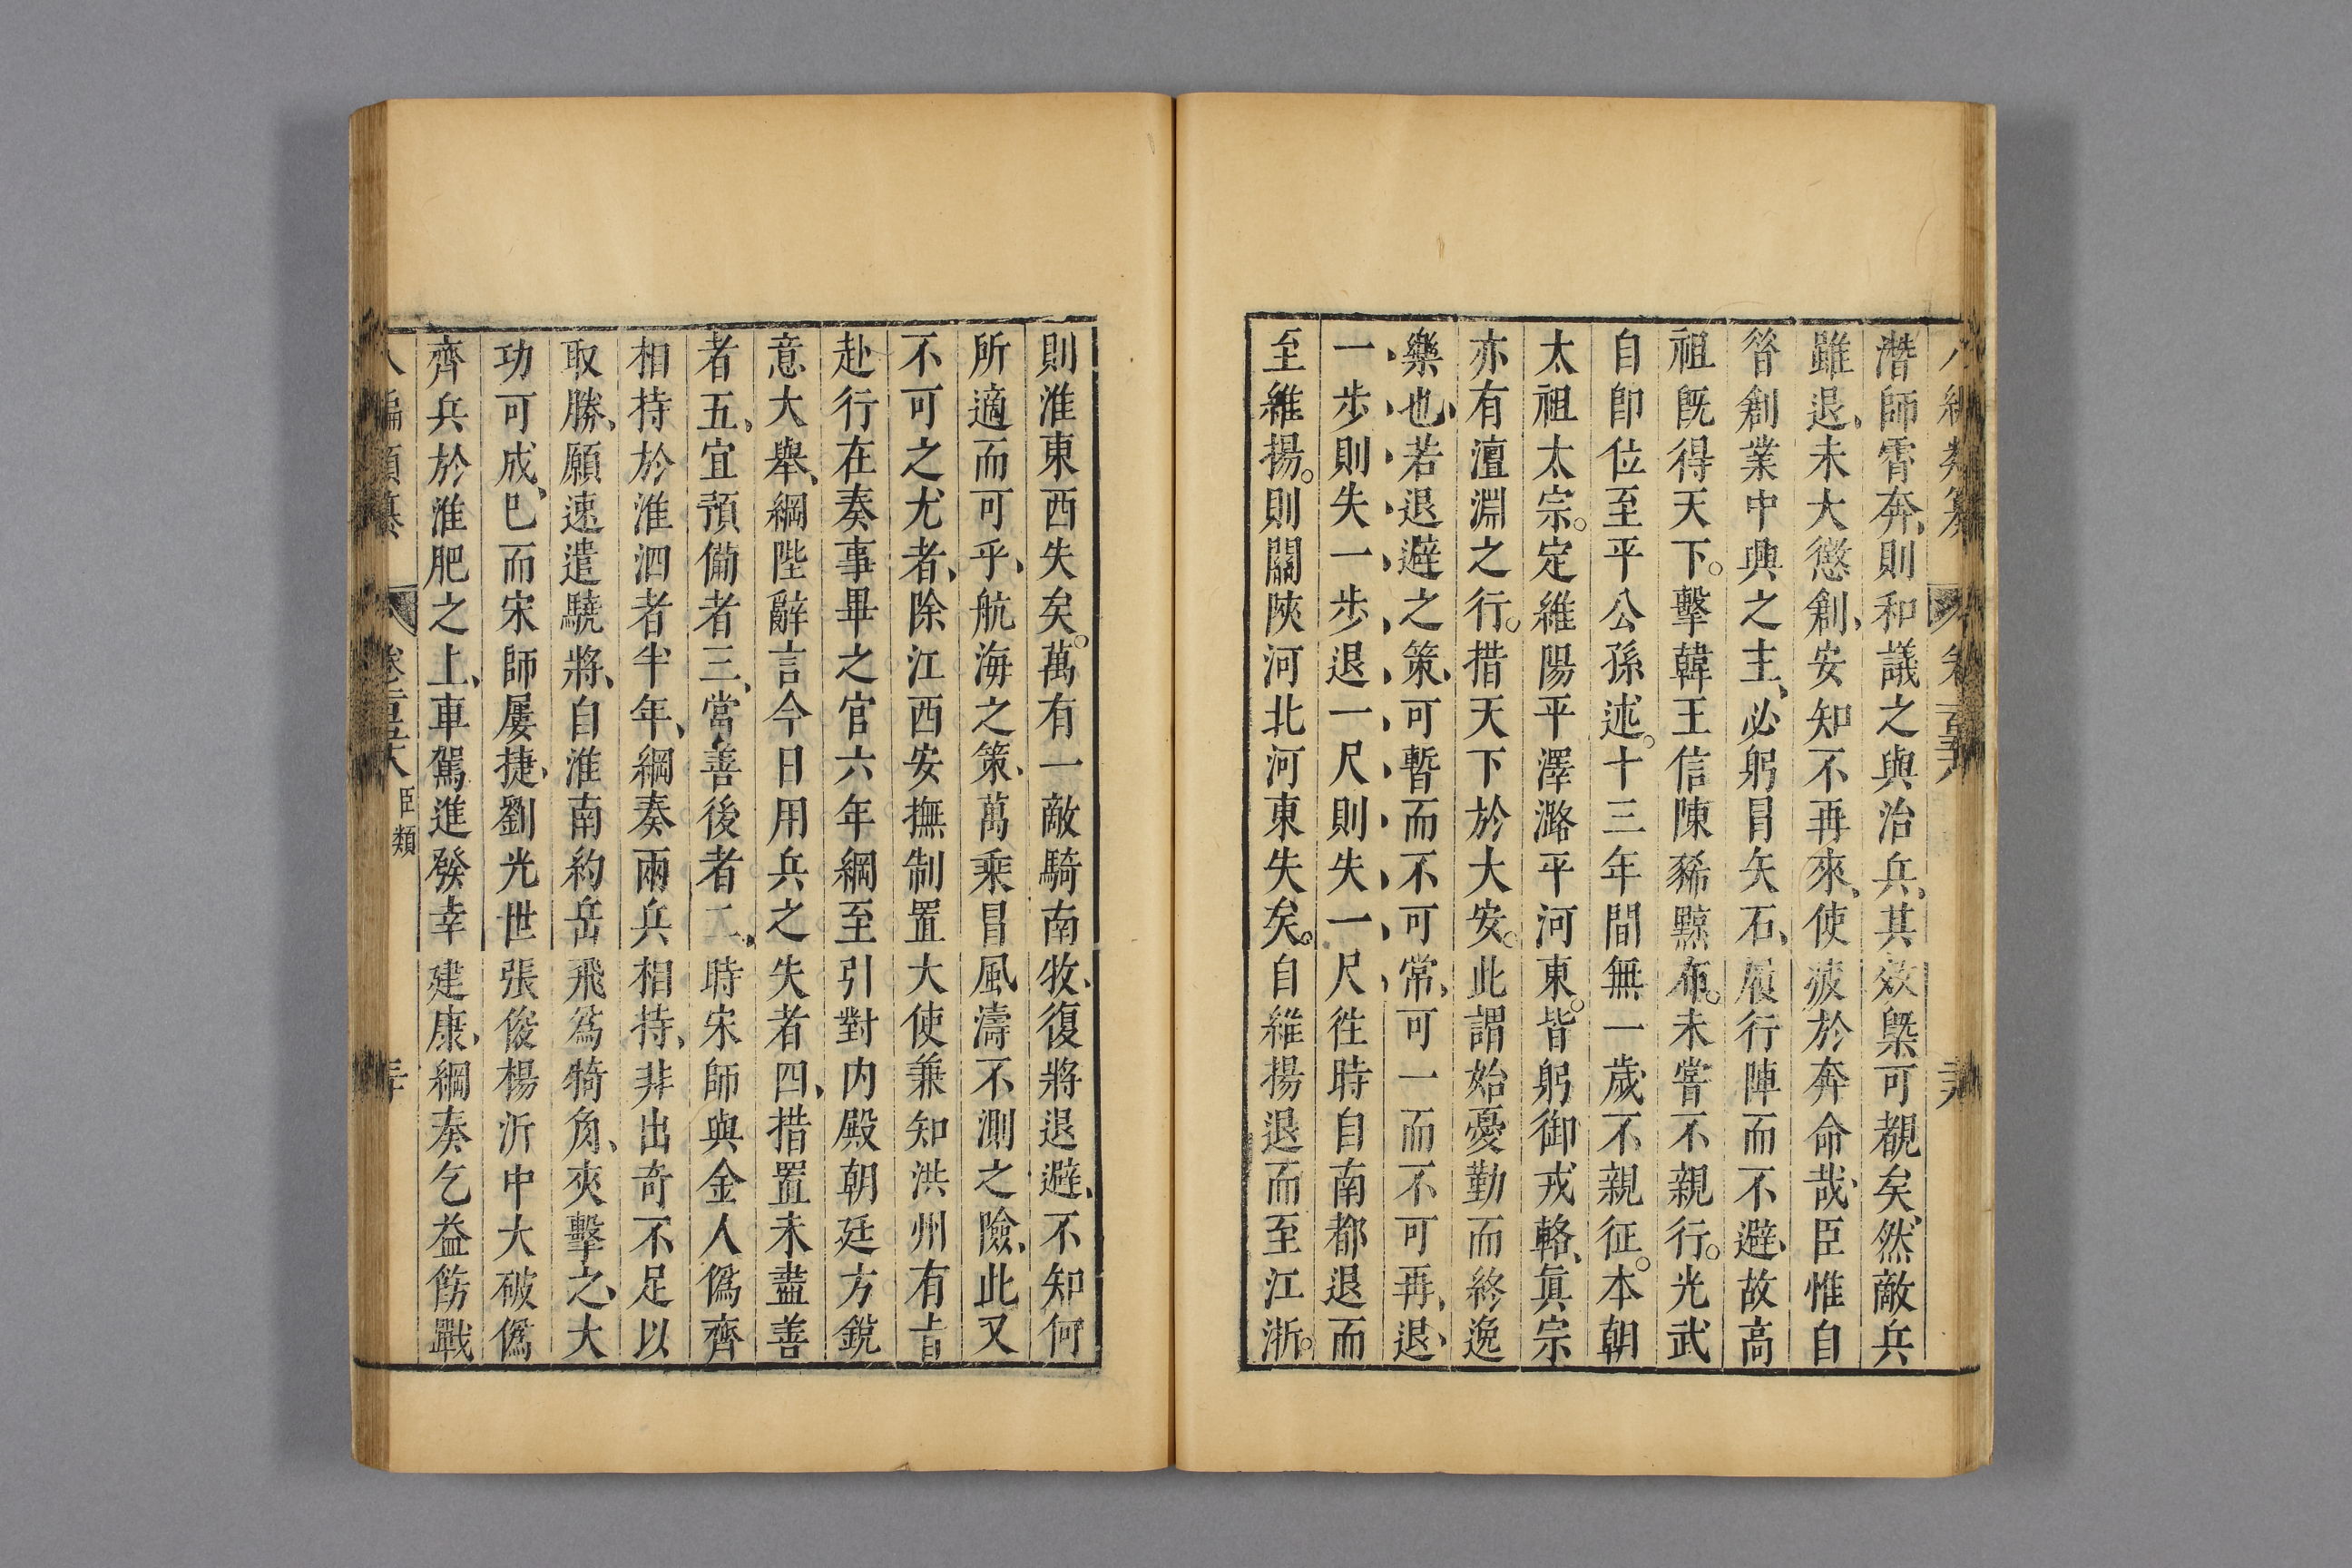 潛師霄奔、則和議之與治兵、其效槩可覩矣、然敵兵
雖退、未大懲創、安知不再來、使疲於奔命哉、臣惟自
昝創業中興之主、必躬冒矢石、履行陣而不避、故高
祖旣得天下。擊韓王信陳豨黥布。未嘗不親行。光武
自卽位至平公孫述。十三年間無一歲不親征。本朝
太祖太宗。定維陽平澤潞平河東。皆躬御戎輅、眞宗
亦有澶淵之行。措天下於大安。此謂始憂勤而終逸
樂也、若退避之策、可暫而不可常、可一而不可再、退、
一步則失一步退一尺則失一尺徃時自南都退而
至維揚。則關陝河北河東失矣。自維揚退而至江浙。
則淮東西失矣。萬有一敵騎南牧、復將退避、不知何
所適而可乎、航海之策、萬乘冒風濤不測之險、此又
不可之尤者、除江西安撫制置大使兼知洪州有㫖
赴行在奏事畢之官六年綱至引對内殿朝廷方銳
意大舉、綱陛辭言今日用兵之失者四、措置未盡善
者五、宜預備者三、當善後者二、時宋師與金人僞齊
相持於淮泗者半年、綱奏兩兵相持、非出奇不足以
取勝、願速遣驍將、自淮南約岳飛爲犄角、夾擊之、大
功可成、已而宋師屢捷、劉光世張俊楊沂中大破僞
齊兵於淮肥之上、車駕進發幸建康、綱奏乞益飭戰
八編類纂 卷二百五十八 臣類 三十